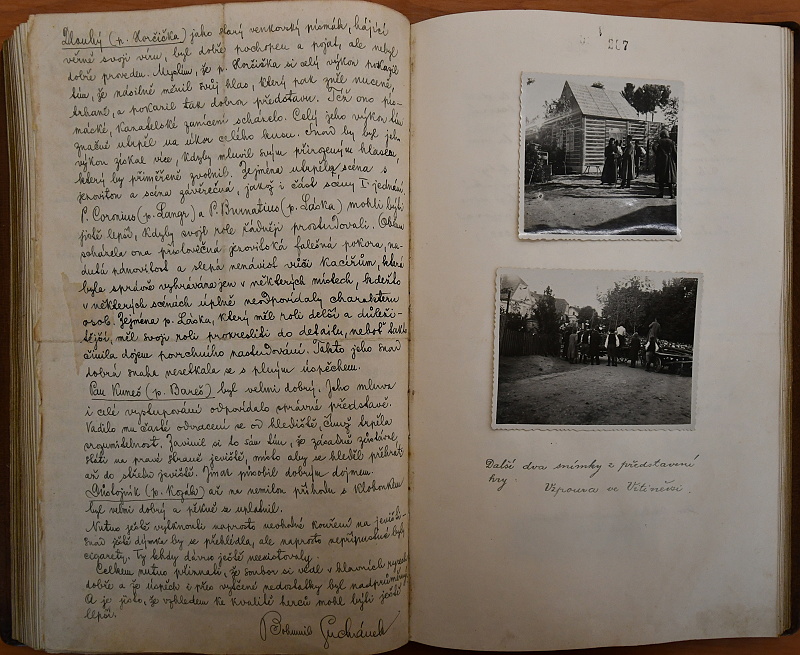 Dlouhý (p. Horčička) jako starý venkovský písmák, hájící
věrně svoji víru, byl dobře pochopen a pojat, ale nebyl
dobře proveden. Myslím, že p. Horčička si celý výkon pokazil
tím, že násilně měnil svůj hlas, který pak zněl nuceně,
trhaně, a pokazil tak dobrou představu. Též ono pís-
mácké, kazatelské zanícení scházelo. Celý jeho výkon tím
značně utrpěl na úkor celého kusu. Snad by byl jeho
výkon získal více, kdyby mluvil svým přirozeným hlasem,
který by přiměřeně zvolnil. Zejména utrpěla scéna s
jezovitou a scéna závěrečná, jakož i část scény I. jednání
P. Coronius (p. Langr) a P. Burnatius (p. Láska) mohli býti
jistě lepší, kdyby svoje role řádněji prostudovali. Oběma
scházela ona příslovečná jezovitská falešná pokora, na-
dutá pánovitost a slepá nenávist vůči kacířům, která
byla správně vyhrávána jen v některých místech, kdežto
v některých scénách úplně neodpovídaly charakteru
osob. Zejména p. Láska, který měl roli delší a důleži-
tější, měl svoji roli prokresliti do detailu, neboť takto
činila dojem povrchního nastudování. Takto jeho snad
dobrá snaha nesetkala se s plným úspěchem.
Pan Kuneš (p. Bareš) byl velmi dobrý. Jeho mluva
i celé vystupování odpovídalo správné představě.
Vadilo mu časté odvracení se od hlediště, čímž trpěla
srozumitelnost. Zavinil si to sám tím, že zásadně zůstával
státi na pravé straně jeviště, místo aby se hleděl přehrát
až do středu jeviště. Jinak působil dobrým dojmem.
(p. Kozák) až na nemilou příhodu s kloboukem
byl velmi dobrý a pěkně se uplatnil.
Nutno ještě vytknouti naprosto nevhodné kouření na jevišti
snad ještě dýmka by se přehlédla, ale naprosto nepřípustné byly
cigarety. Ty tehdy dávno ještě neexistovaly.
Celkem nutno přiznati, že soubor si vedl v hlavních rysech
dobře a že úspěch i přes vytčené nedostatky byl nadprůměrný.
A je jisto, že vzhledem ke kvalitě herců mohl býti ještě
lepší.
Bohumil
207
Další dva snímky z představení
hry Vzpoura ve Větinězsi.